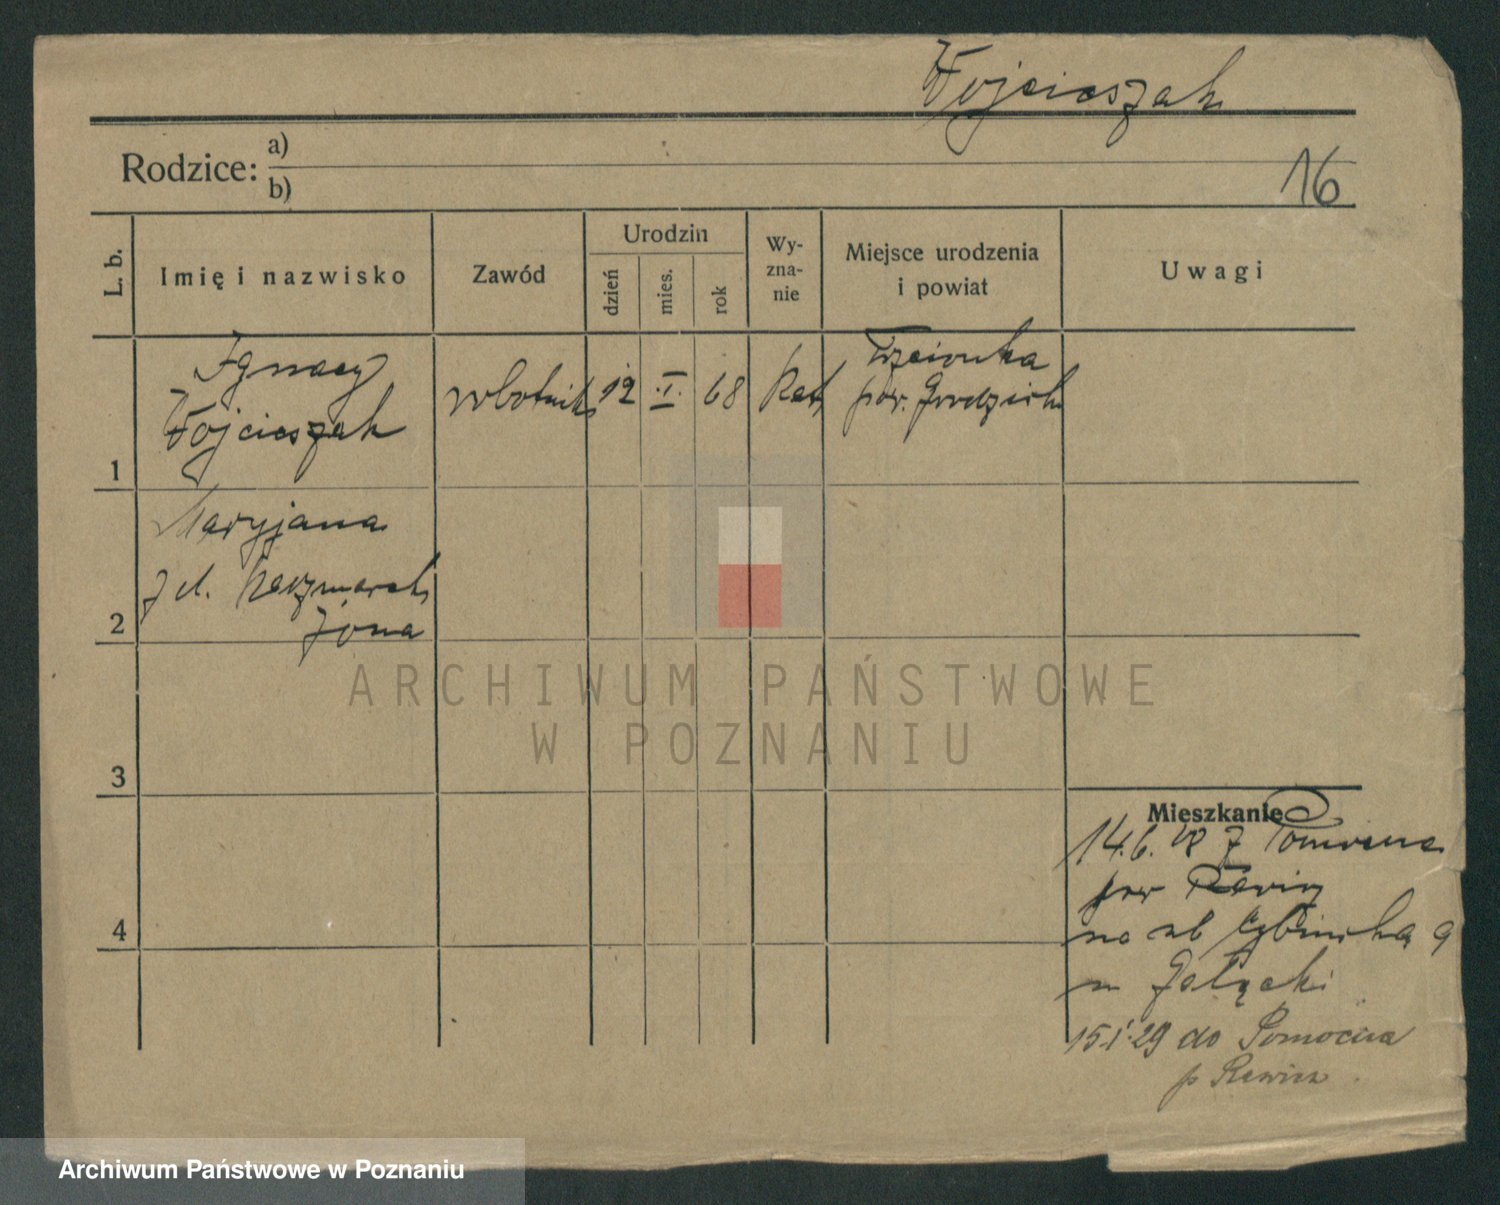 Wojcieszak
Rodzice: a)
b)
16
L. b.
Imię i nazwisko
Zawód
Urodzin
dzień
mies.
rok
Wy-
zna-
nie
Miejsce urodzenia
i powiat
Uwagi
1
Ignacy
Wojcieszak
robotnik
12
I.
68
Kat
Trzcionka
pow. Grodzisk
2
Maryjana
z d. Kaczmarek
żona
3
4
Mieszkanie
14.6.28 z
pow
na ul Cybinska 9
Gałącki
15.I.29 do Pomocna
p Rawicz
ARCHIWUM PAŃSTWOWE
W POZNANIU
Archiwum Państwowe w Poznaniu